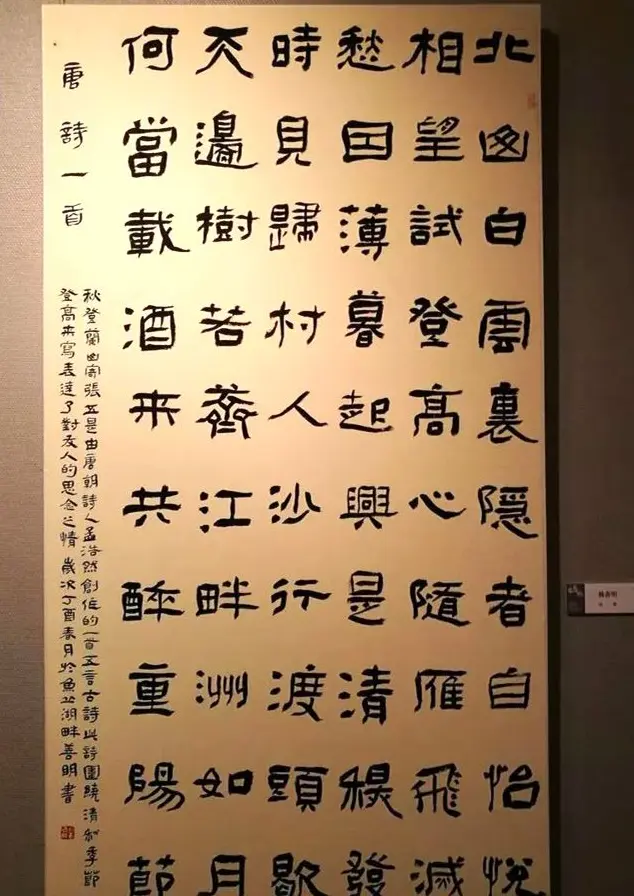 北山白雲裏隱者自怡悅
相望試登高心隨雁飛滅
愁因薄暮起興是清秋發
時見歸村人沙行渡頭歇
天邊樹若薺江畔洲如月
何當載酒来共醉重陽節
唐詩一首
秋登蘭山寄張五是由唐朝詩人孟浩然創作的一首五言古詩此詩圍繞清秋季節
登高来寫表達了對友人的思念之情歲次丁酉春月於魚山湖畔善明書